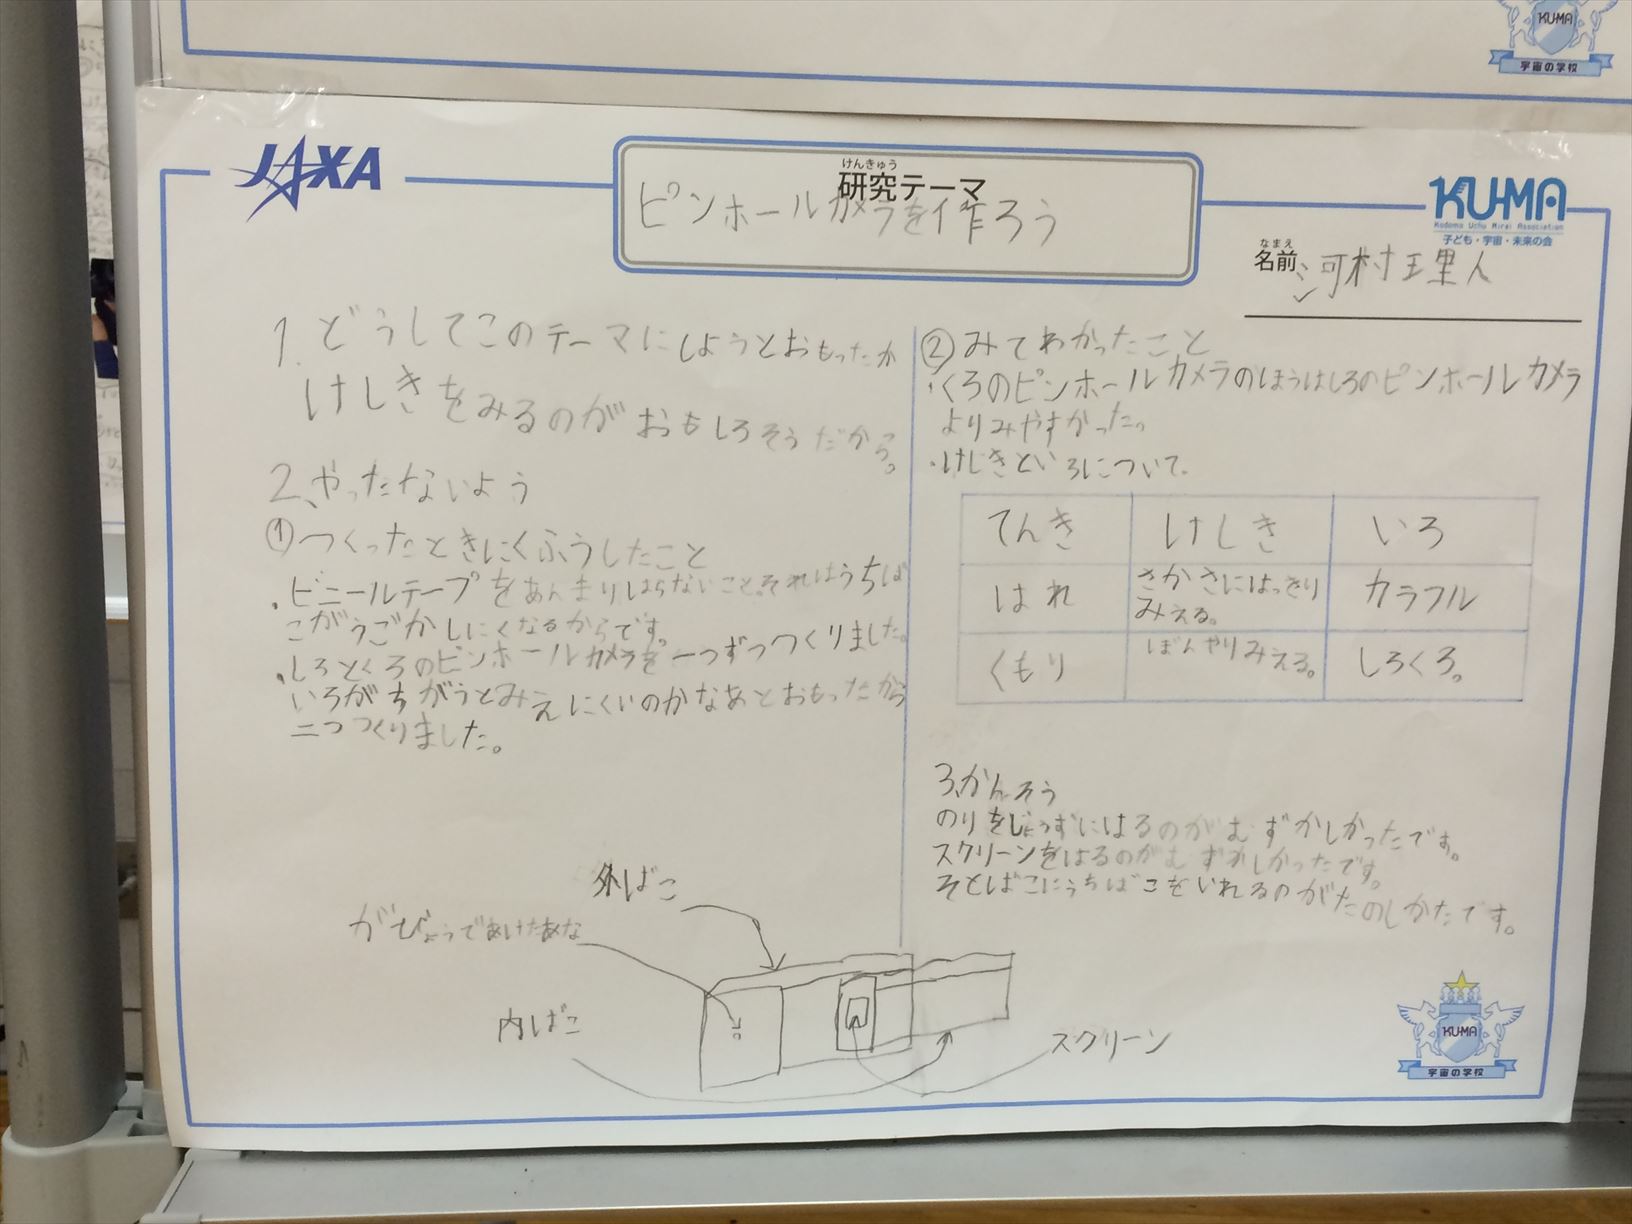 KUMA
宇宙の学校
JAXA
けんきゅう
研究テーマ
ピンホールカメラを作ろう
KU-MA
Kodomo Uchu Mirai Association
子ども・宇宙・未来の会
なまえ
名前
河村理人
1.どうしてこのテーマにしようとおもったか
けしきをみるのがおもしろそうだから。
2、やったないよう
①つくったときにくふうしたこと
・ビニールテープをあんまりしばらないこと。それはうちば
こがうごかしにくくなるからです。
・しろとくろのピンホールカメラを一つずつつくりました。
いろがちがうとみえにくいのかなあとおもったから
二つつくりました。
外ばこ
がびょうであけたあな
内ばこ
スクリーン
②みてわかったこと
・くろのピンホールカメラのほうはしろのピンホールカメラ
よりみやすかった。
・けしきといろについて、
てんき けしき いろ
はれ さかさにはっきり カラフル
みえる。
くもり ぼんやりみえる。 しろくろ。
3、かんそう
のりをじょうずにはるのがむずかしかったです。
スクリーンをはるのがむずかしかったです。
そとばこにうちばこをいれるのがたのしかたです。
KU-MA
宇宙の学校